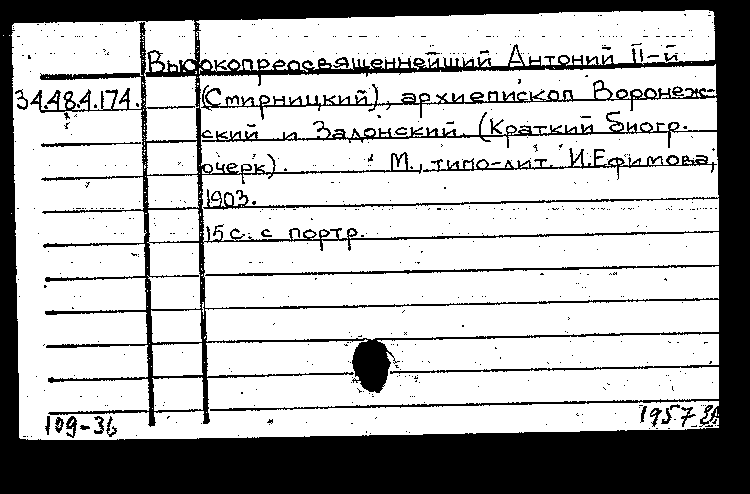 Высокопреосвященнейший Антоний II-й
34.48.4.174. (Смирницкий), архиепископ Воронеж-
ский и Задонский. (Краткий биогр.
очерк). М., типо-лит. И.Ефимова,
1903.
15 с. с портр.
109-36 1957